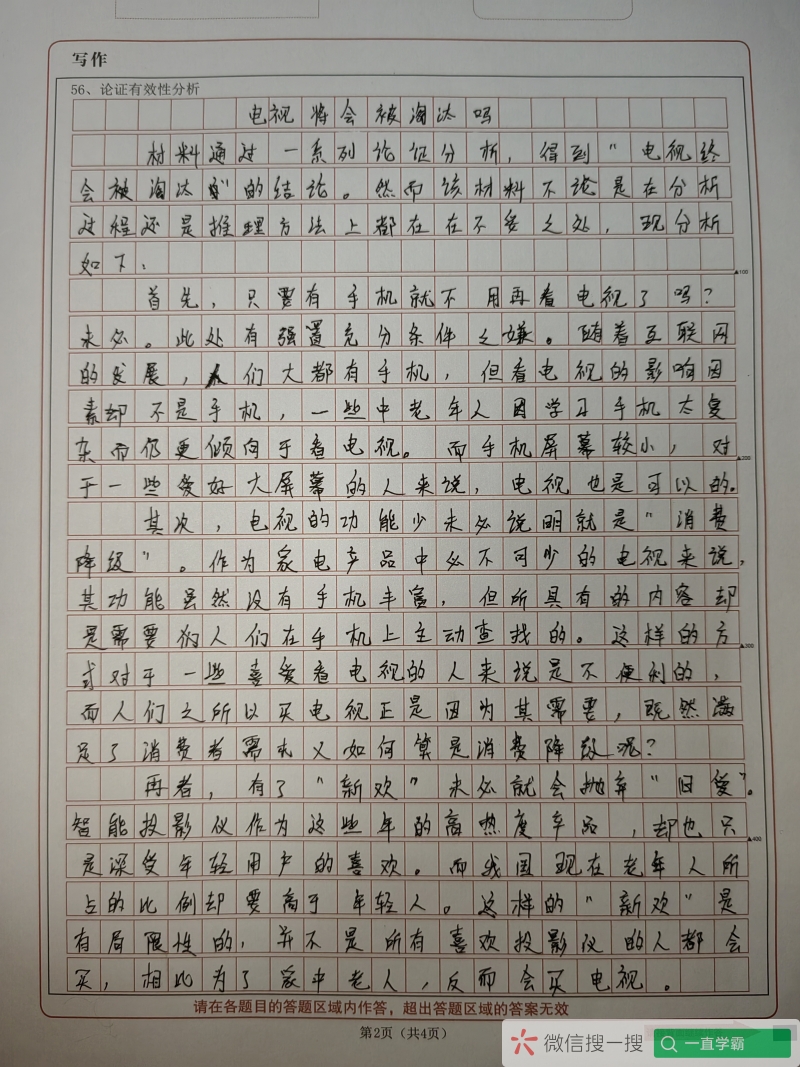 写作
56、论证有效性分析
电视将会被淘汰吗
材料通过一系列论证分析，得到“电视终
会被淘汰”的结论。然而该材料不论是在分析
过程还是推理方法上都在在不妥之处，现分析
如下：
100
首先，只要有手机就不用再看电视了吗？
未必。此处有强置充分条件之嫌。随着互联网
的发展，人们大都有手机，但看电视的影响因
素却不是手机，一些中老年人因学习手机太复
杂而仍更倾向于看电视。而手机屏幕较小，对
200
于一些爱好大屏幕的人来说，电视也是可以的。
其次，电视的功能少未必说明就是“消费
降级”。作为家电产品中必不可少的电视来说，
其功能虽然没有手机丰富，但所具有的内容却
是需要人们在手机上主动查找的。这样的方
300
式对于一些喜爱看电视的人来说是不便利的，
而人们之所以买电视正是因为其需要，既然满
足了消费者需求又如何算是消费降级呢？
再者，有了“新欢”未必就会抛弃“旧爱”。
智能投影仪作为这些年的高热度产品，却也只
400
是深受年轻用户的喜欢。而我国现在老年人所
占的比例却要高于年轻人。这样的“新欢”是
有局限性的，并不是所有喜欢投影仪的人都会
买，相比为了家中老人，反而会买电视。
请在各题目的答题区域内作答，超出答题区域的答案无效
第2页（共4页）
微信搜一搜
一直学霸